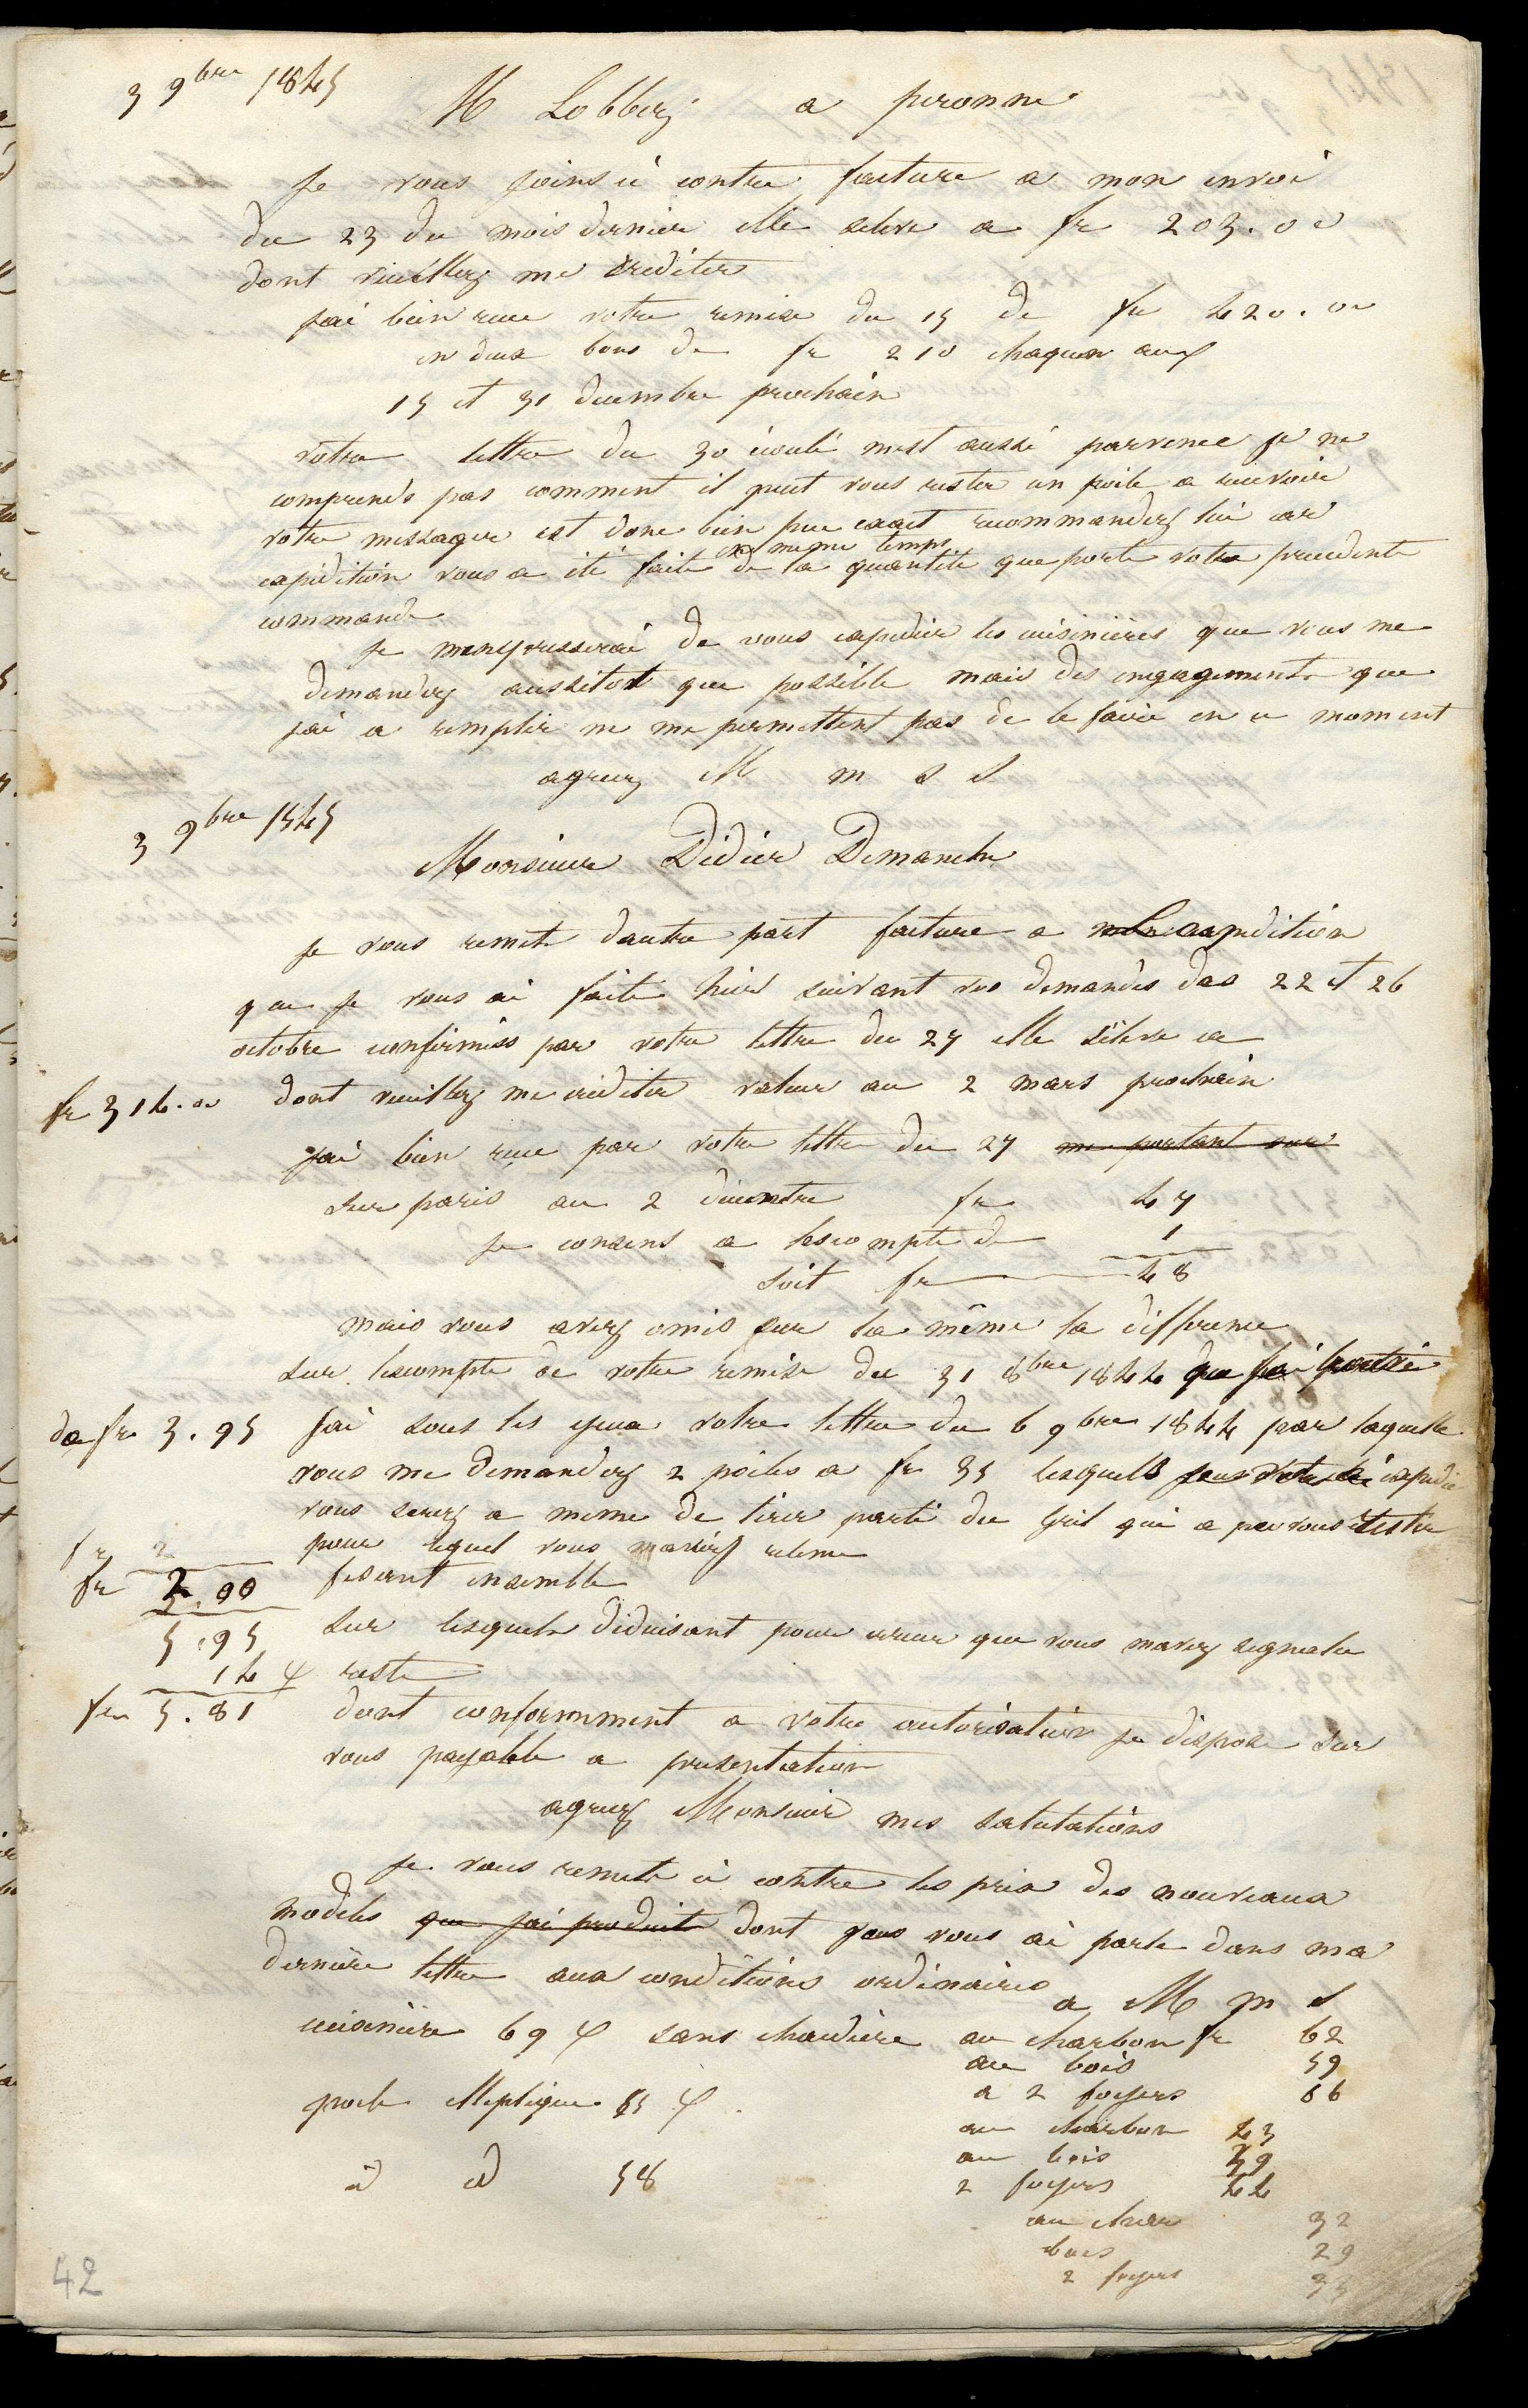 3 9bre 1845
M Lobbez a peronne
Je vous joins ci contre facture a mon envoi
du 23 du mois dernier elle seleve a fr 203.00
dont veuillez me créditer
jai bien recu votre remise du 15 de fr 420.00
en deux bons de fr 210 chaqun aux
15 et 31 decembre prochain
votre lettre du 30 écoulé mest aussi parvenue je ne
comprends pas comment il peut vous rester un poile a recevoir
votre messager est donc bien peu exact recommandez lui car
en meme temps
expédition vous a été faite de la quantité que porte votre precedente
commande
Je mempresserai de vous expedier les cuisinières que vous me
demandez aussitot que possible mais des engagements que
jai a remplir ne me permettent pas de le faire en ce moment
agreez M m s s
3 9bre 1845
Monsieur Didier Demanche
Je vous remets dautre part facture a expedition
que je vous ai faite hier suivant vos demandes des 22 et 26
octobre confirmées par votre lettre du 27 elle sélève a
fr 314.00 dont veuillez me créditer valeur au 2 mars prochain
jai bien recu par votre lettre du 27 me portant sur
sur paris au 2 décembre fr 47
je consens a lescompte de 1
soit fr 48
mais vous avez omis sur la même la difference
sur lescompte de votre remise du 31 8bre 1844 que jai
de fr 3.95 jai sous les yeux votre lettre du 6 9bre 1844 par laquelle
vous me demandez 2 poiles a fr 35 lesquels expedié
vous serez a meme de tirer parti du qui a peu vous rester
fr 2 pour lequel vous
fr 2.00 fesant ensemble
5.95 sur lesquels déduisant pour erreur que vous mavez signalée
14 c reste
fr 5.81 dont conformement a votre autorisation je dispose sur
vous payable a presentation
agreez Monsieur mes salutations
Je vous remets ci contre les prix des nouveaux
modeles que jai produit dont vous ai parle dans ma
dernière lettre aux conditions ordinaires
a M m s
cuisinière 69 c sans chaudière au charbon fr 62
au bois 59
a 2 foyers 66
poele elleptique 85 c
au charbon 43
au bois 39
2 foyers 44
id id 58
au char 32
bois 29
2 foyers 33
42